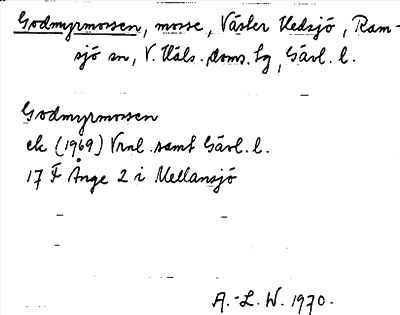 Godmyrmossen, mosse, Väster Hedsjö, Ram-
sjö sn, V. Häls. doms. tg, Gävl. l.
Godmyrmossen
ek (1969) Vrnl. samt Gävl. l.
17 F Ånge 2 i Mellansjö
A.-L. W. 1970.